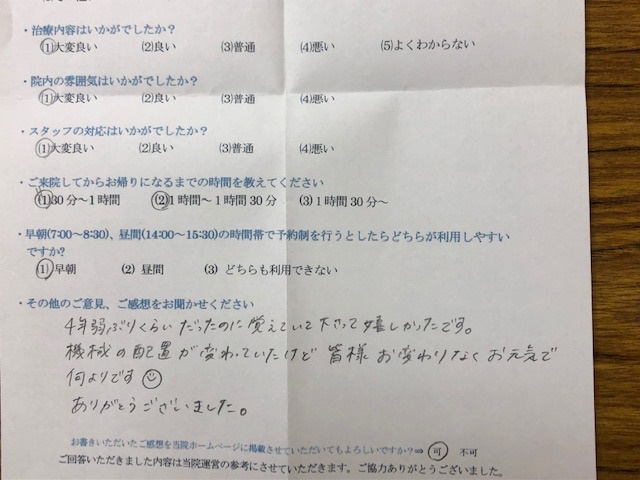 ・治療内容はいかがでしたか？
(1)大変良い (2)良い (3)普通 (4)悪い (5)よくわからない
・院内の雰囲気はいかがでしたか？
(1)大変良い (2)良い (3)普通 (4)悪い
・スタッフの対応はいかがでしたか？
(1)大変良い (2)良い (3)普通 (4)悪い
・ご来院してからお帰りになるまでの時間を教えてください
(1)30分～1時間 (2)1時間～1時間30分 (3)1時間30分～
・早朝(7:00～8:30)、昼間(14:00～15:30)の時間帯で予約制を行うとしたらどちらが利用しやすい
ですか?
(1) 早朝 (2) 昼間 (3) どちらも利用できない
・その他のご意見、ご感想をお聞かせください
4年弱ぶりくらいだったのに覚えていて下さって嬉しかったです。
機械の配置が変わっていたけど皆様お変わりなくお元気で
何よりです
ありがとうございました。
お書きいただいたご感想を当院ホームページに掲載させていただいてもよろしいですか？⇒ 可 不可
ご回答いただきました内容は当院運営の参考にさせていただきます。ご協力ありがとうございました。